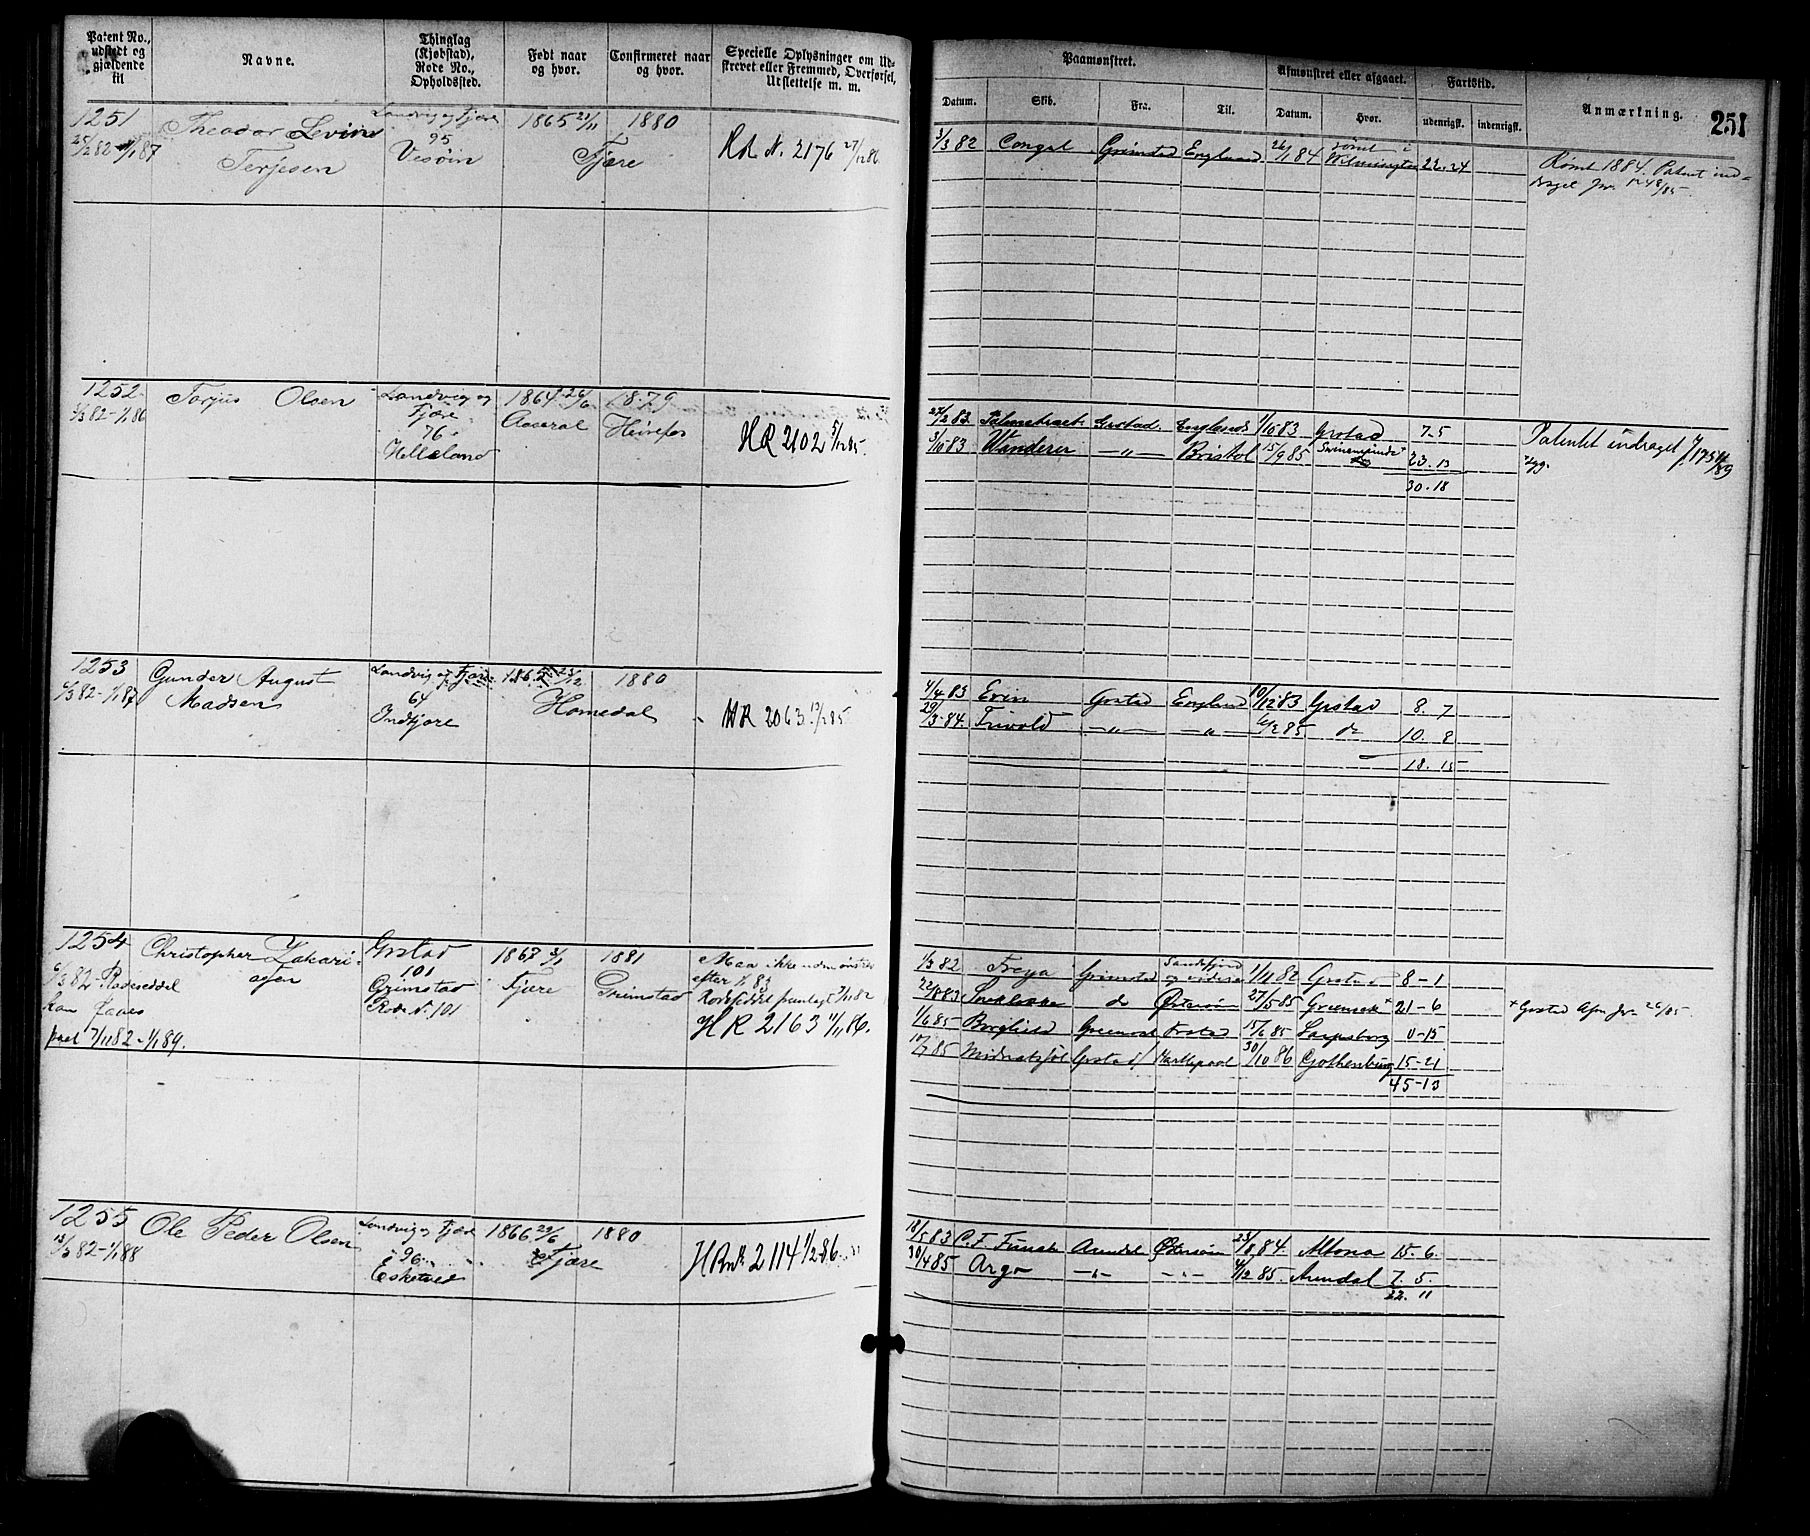 Patent No., udstedt og gjældende til
Navne.
Thinglag (Kjøbstad), Rode No., Opholdssted.
Født naar og hvor.
Confirmeret naar og hvor.
Specielle Oplysninger om Udskrevet eller Fremmed, Overførsel, Urslettelse m. m.
Paamønstret.
Datum.
Skib.
Fra.
Til.
Afmønstret eller afgaaet.
Datum.
Hvor.
Fartstid.
udenrigsk.
indenrigsk.
Anmærkning.
251
1251
25/2 82 - 1/1 87
Theodor Levin
Terjesen
Landvig og Fjære
95
Vesøin
1865 21/11
Fjære
1880
RR N. 2176 27/12 86
3/3 82 Congal Grimstad England 26/1 84 rømt i Wilmington 22.24
Rømt 1884. Patent ind-
1252
1/3 82 - 1/1 86
Tarjus Olsen
Landvig og
Fjære
76
Helleland
1864 26/6
1879
Heirefos
HR 2102 5/12 85
27/2 83 Grstad England 1/10 83 Grstad 7-5
3/10 83 Wanderer -"- Bristol 15/9 85 23.13
30.18
Patentet inddraget
1253
6/3 82 - 1/1 87
Gunder August
Madsen
Landvig og Fjære
64
Indfjære
23/12
Homedal
1880
HR 2063 12/2 85
4/4 83 Even Grstad England 10/12 83 Grstad 8.7
29/3 84 Trivold -"- -"- 6/2 85 do 10.8
18.15
1254
6/3 82 - Rodeseddel
kan faaes
pat 7/11 82 - 1/1 89.
Christopher Zakari-
asen
Grstad
101
Grimstad
Rode N. 101
1867 3/1
Fjære
1881
Grimstad
Maa ikke udmønstres
efter 1/1 83
Rodeseddel fremlagt 7/11 82
HR 2163 11/11 86.
1/3 82 Freya Grimstad Sandefjord og videre 1/11 82 Grstad 8-1
22/8 83 do Østersøn 27/5 85 Greenock + 21-6
+ Grstad Afm Jr. 26/85
1/6 85 Borghild Greenock Grstad 15/6 85 Sarpsborg 0-15
10/7 85 Midnatssol Grstad Hartlepool 30/10 86 Gothenburg 15-21
45-13
1255
13/3 82 - 1/1 88
Ole Peder Olsen
Landvig og Fjære
96
Esketved
1866 29/6
Fjære
1880
HR N. 2114 1/2 86
18/5 83 C. F. Funch Arendal Østersøn 23/8 84. Altona 15-6.
30/4 85 Argo -"- -"- 4/12 85. Arendal 7.5.
22.11